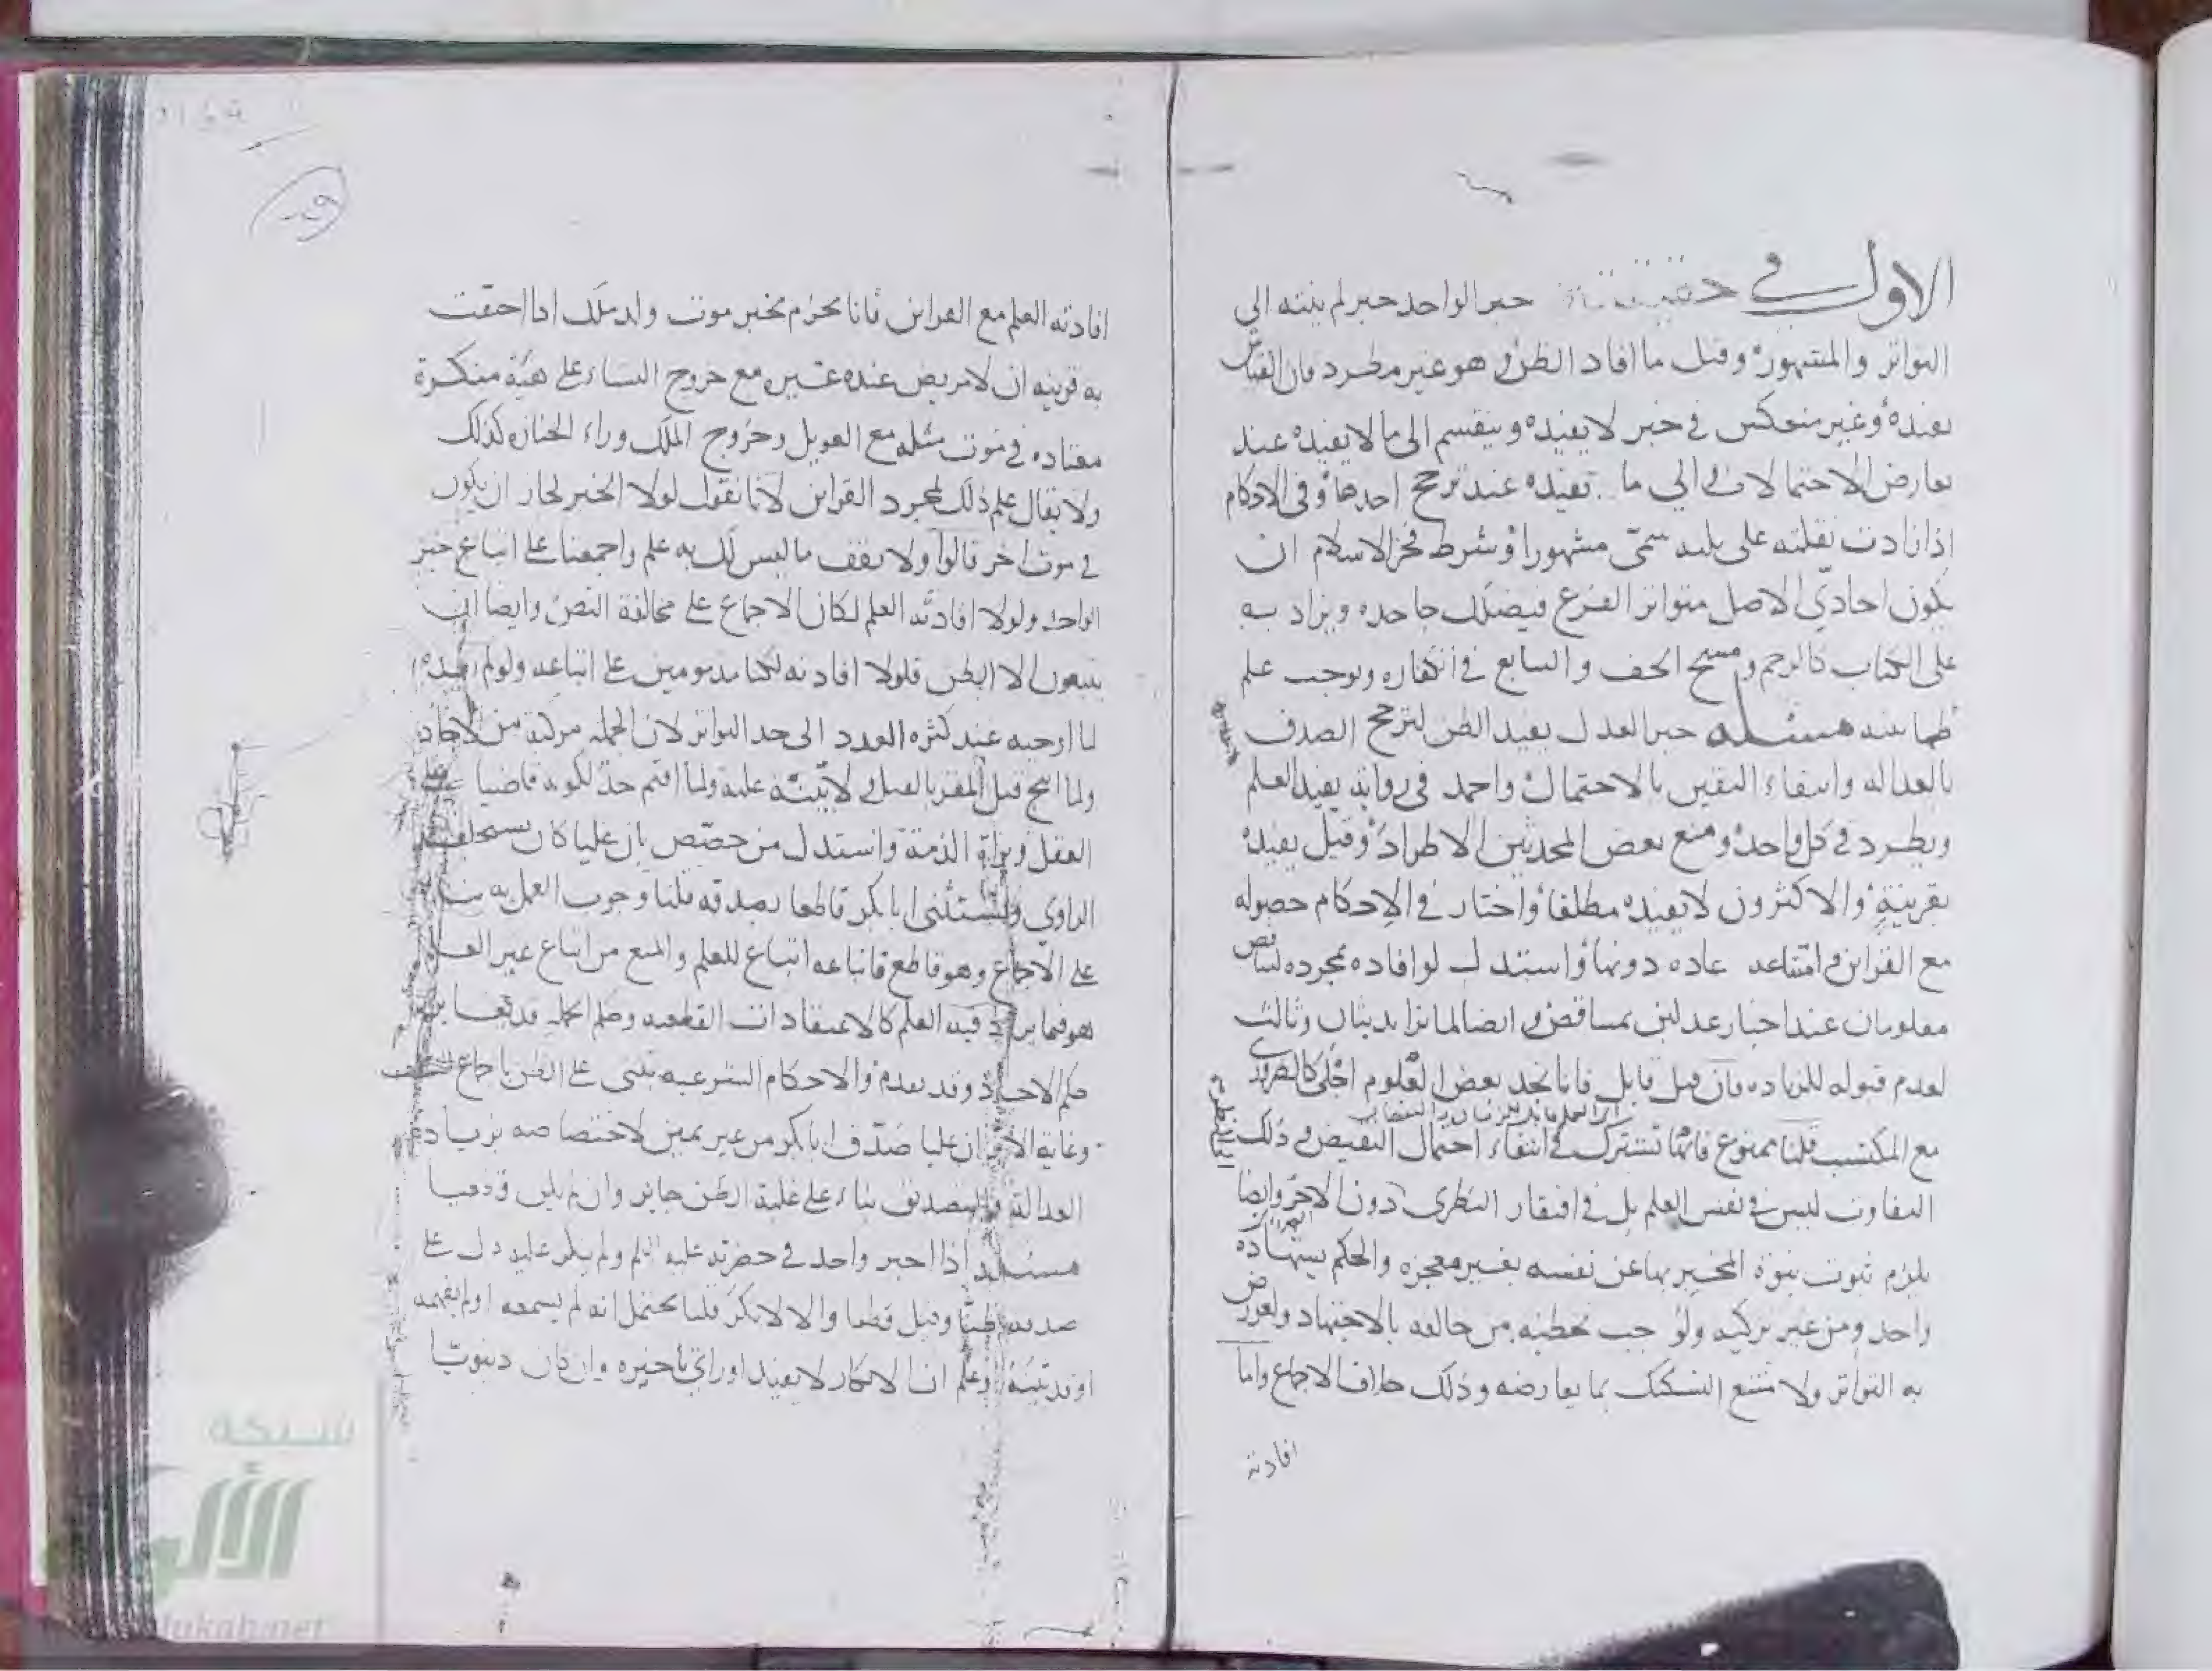 الاول في حقيقته خبر الواحد خبر لم ينته الى
التواتر والمشهور وقيل ما افاد الظن وهو غير مطرد فان القياس
يفيده وغير منعكس في خبر لا يفيده وينقسم الى ما لا يفيده عند
تعارض الاحتمالات والى ما يفيده عند ترجح احدها وفي الاحكام
اذا زادت نقلته على ثلثة سمي مشهورا وشرط فخر الاسلام ان
يكون احادي الاصل متواتر الفرع فيضلل جاحده ويزاد به
على الكتاب كالرجم ومسح الخف والتتابع في الكفاره ويوجب علم
طمانينه مسئله خبر العدل يفيد الظن لترجح الصدق
بالعداله وانتفاء اليقين بالاحتمال واحمد في روايه يفيد العلم
ويطرد في كل واحد ومنع بعض المحدثين الاطراد وقيل يفيده
بقرينة والاكثرون لا يفيده مطلقا واختار في الاحكام حصوله
مع القراين وامتناعه عاده دونها واستدل لو افاده بمجرده لتناقض
معلومان عند اخبار عدلين بمتناقضين وايضا لما تزايد بثان وثالث
لعدم قبوله للزياده فان قيل قابل فانا نجد بعض العلوم اجلى كالضروري
مع المكتسب قلنا ممنوع فانهما تشترك في انتفاء احتمال النقيض وذلك
التفاوت ليس في نفس العلم بل في افتقار النظري دون الاخر وايضا
يلزم ثبوت نبوة المخبر بها عن نفسه بغير معجزه والحكم بشهادة
واحد ومن غير تزكيه ولوجب تخطئه من خالفه بالاجتهاد ولعورض
به التواتر ولامتنع التشكيك بما يعارضه وذلك خلاف الاجماع واما
افادته
افادته العلم مع القراين فانا نجزم بخبر موت ولد ملك اذا احتفت
به قرينه ان لا مريض عنده غيره مع خروج النساء على هيئة منكرة
معتاده في موت مثله مع العويل وخروج الملك وراء الجنازه كذلك
ولا يقال علم ذلك بمجرد القراين لانا نقول لولا الخبر لجاز ان يكون
في موت اخر قالوا ولا تقف ما ليس لك به علم واجمعنا على اتباع خبر
الواحد ولولا افادته العلم لكان الاجماع على مخالفة النص وايضا ان
يتبعون الا الظن فلولا افادته لكنا مذمومين على اتباعه ولو لم يفده
لما اوجبه عند كثره العدد الى حد التواتر لان الجمله مركبة من الاحاد
ولما ابيح قتل المقر بالقتل ولا بينة عليه ولما اقيم حد لكونه قاضيا على
العقل وبراة الذمة واستدل من خصص بان عليا كان يستحلف
الراوي واستثنى ابا بكر قاطعا بصدقه قلنا وجوب العمل به
على الاجماع وهو قاطع فاتباعه اتباع للعلم والمنع من اتباع غير العلم
هو فيما يراد فيه العلم كالاعتقادات القطعيه وحكم الجمله قد يغاير
حكم الاحاد وقد تقدم والاحكام الشرعيه تبتنى على الظن باجماع السلف
وغاية الامر ان عليا صدق ابا بكر من غير يمين لاختصاصه بزيادة
العدالة والتصديق بناء على غلبة الظن جايز وان لم يكن قطعيا
مسئله اذا اخبر واحد في حضرته عليه السلم ولم ينكر عليه دل على
صدقه ظنا وقيل قطعا والا لانكر قلنا يحتمل انه لم يسمعه او لم يفهمه
او قد بينه او علم ان الانكار لا يفيد او راى تاخيره وان كان دينويا